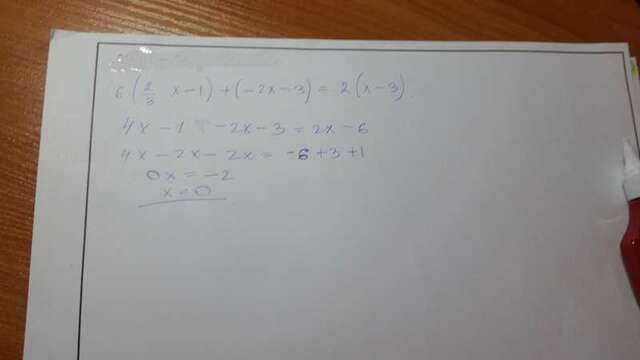 6 (2/3 x-1) + (-2x-3) = 2(x-3)
4x - 1 - 2x - 3 = 2x - 6
4x - 2x - 2x = -6 + 3 + 1
0x = -2
x = 0